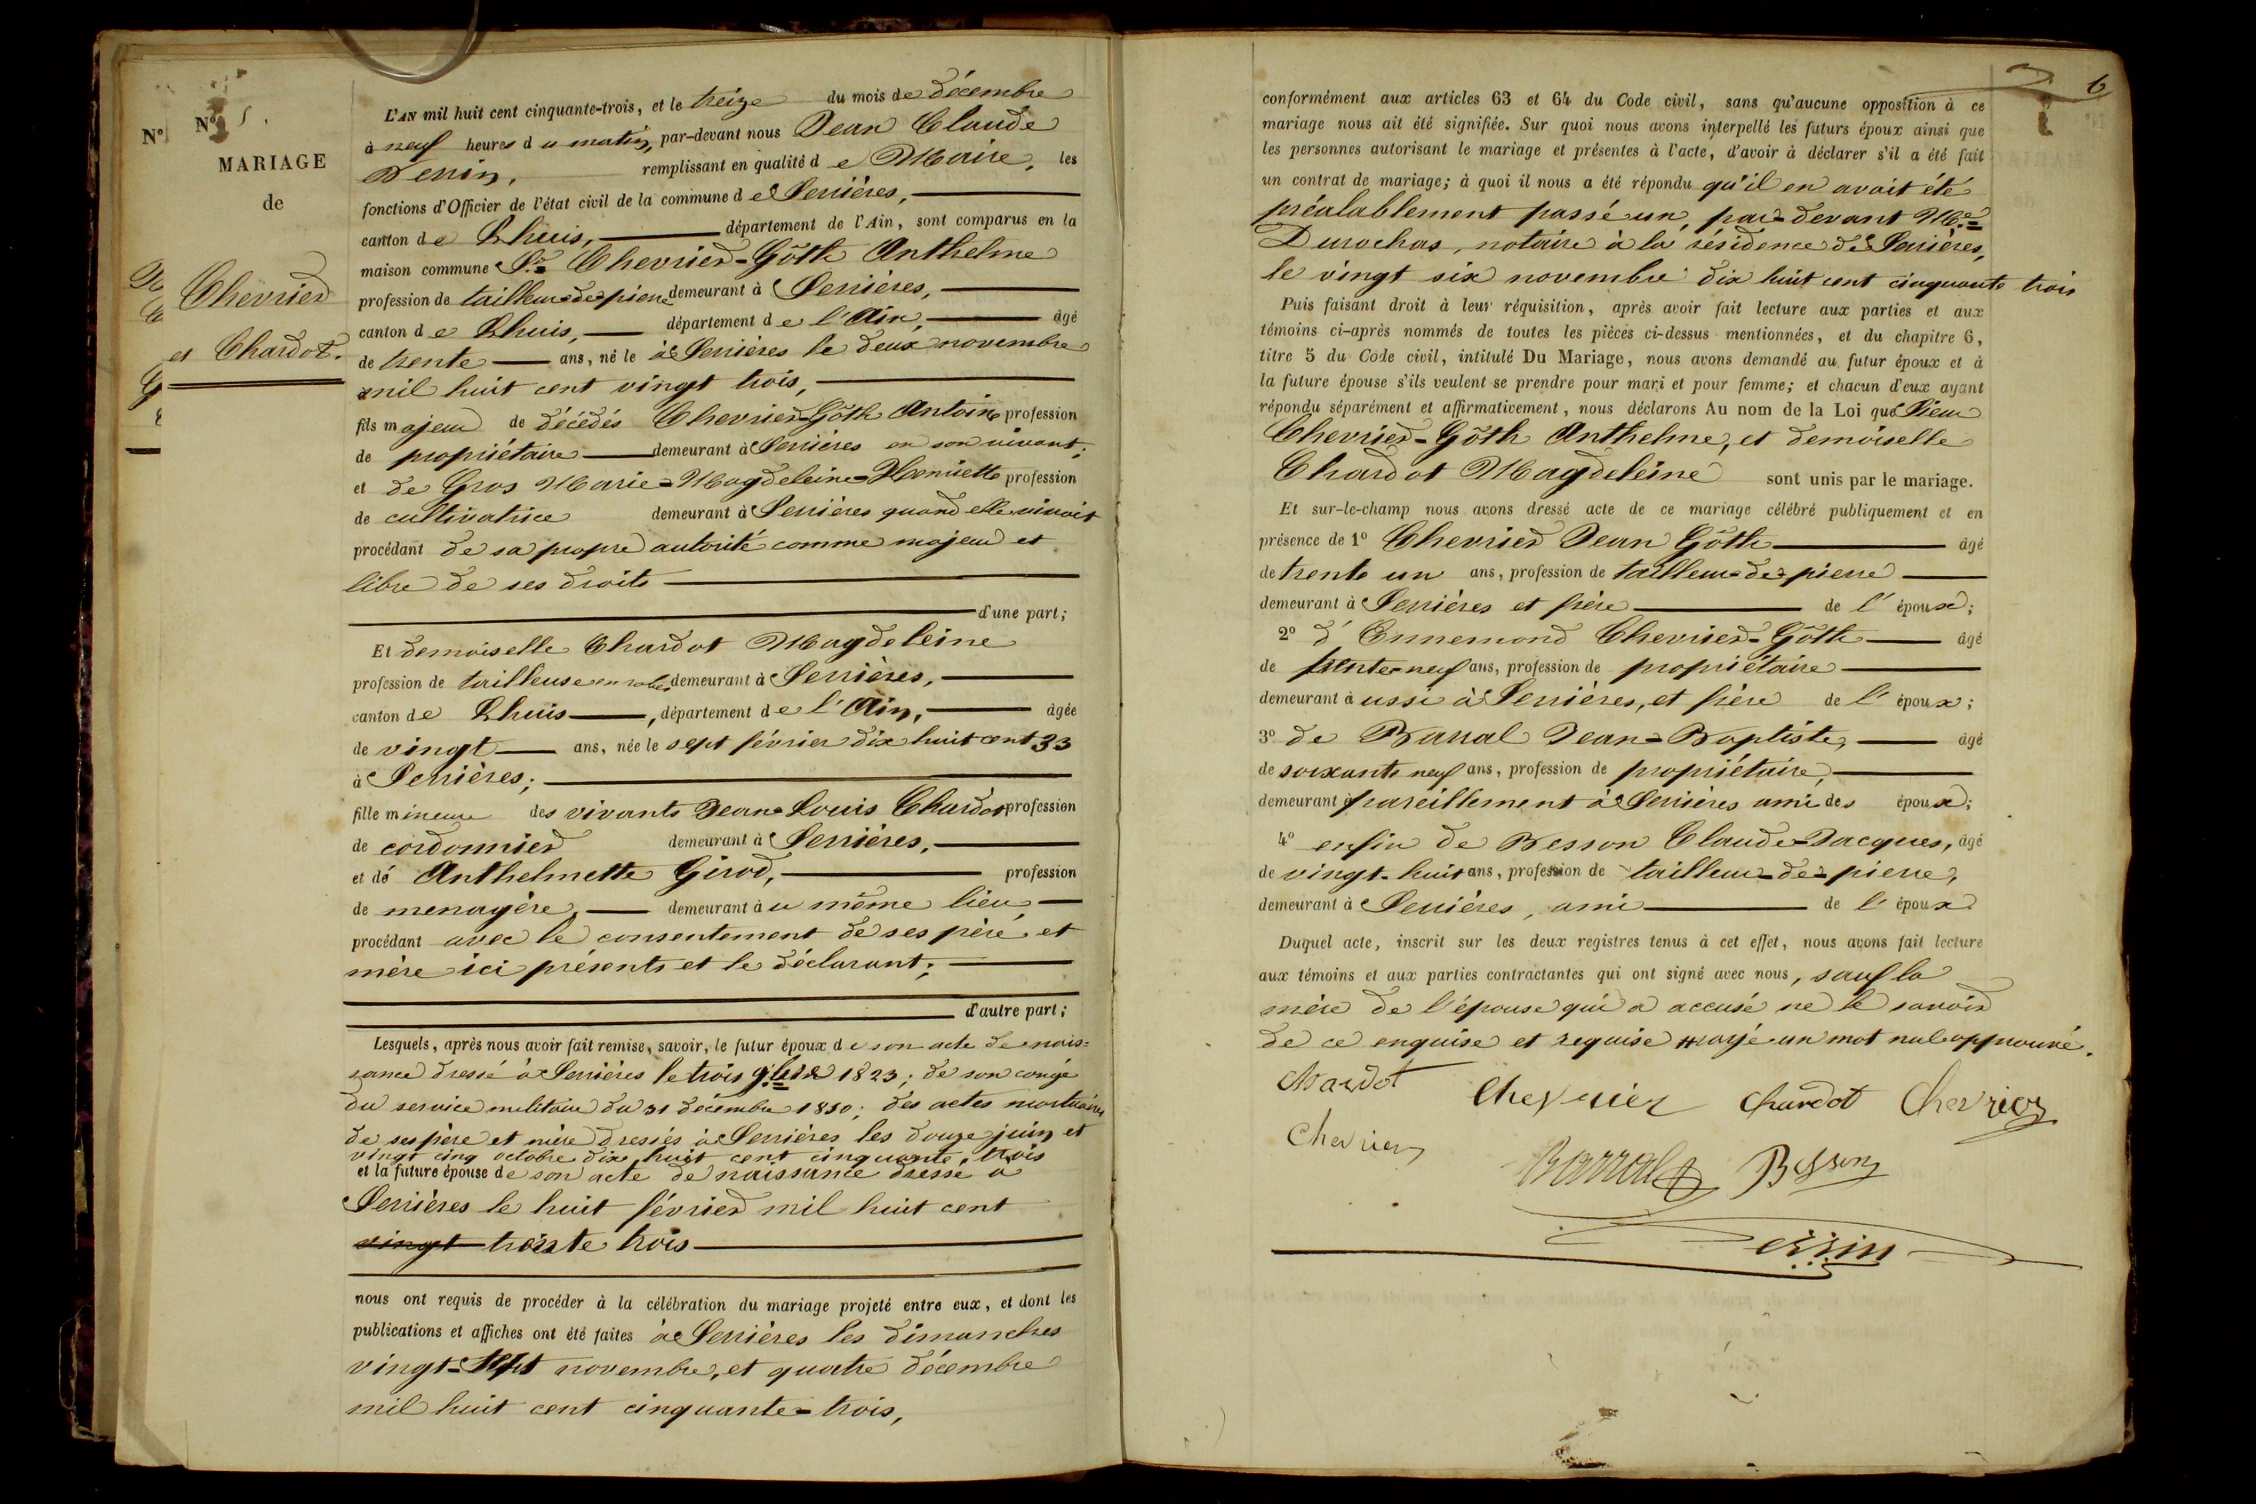 N°
N° 5.
MARIAGE
de
Chevrier
et Chardot.
L'AN mil huit cent cinquante-trois, et le treize du mois de décembre
à neuf heures du matin, par-devant nous Jean Claude
Perrin, remplissant en qualité de Maire, les
fonctions d'Officier de l'état civil de la commune de Serrières,
canton de Lhuis, département de l'Ain, sont comparus en la
maison commune Sr. Chevrier-Gôth Anthelme
profession de tailleur-de-pierre demeurant à Serrières,
canton de Lhuis, département de l'Ain, âgé
de trente ans, né le à Serrières le deux novembre
mil huit cent vingt trois,
fils majeur de décédés Chevrier-Gôth Antoine profession
de propriétaire demeurant à Serrières en son vivant;
et de Gros Marie-Magdeleine-Henriette profession
de cultivatrice demeurant à Serrières quand elle vivait
procédant de sa propre autorité comme majeur et
libre de ses droits
d'une part;
Et demoiselle Chardot Magdeleine
profession de tailleuse en robes demeurant à Serrières,
canton de Lhuis, département de l'Ain, âgée
de vingt ans, née le sept février dix huit cent 33
à Serrières;
fille mineure des vivants Jean-Louis Chardot profession
de cordonnier demeurant à Serrières,
et de Anthelmette Girod, profession
de menagère, demeurant au même lieu
procédant avec le consentement de ses père et
mère ici présents et le déclarant;
d'autre part;
Lesquels, après nous avoir fait remise, savoir, le futur époux de son acte de nais=
sance dressé à Serrières le trois 9bre 1823; de son congé
du service militaire du 31 décembre 1850; des actes mortuaires
de ses père et mère dressés à Serrières les douze juin et
vingt cinq octobre dix huit cent cinquante trois
et la future épouse de son acte de naissance dressé à
Serrières le huit février mil huit cent
vingt trente trois
nous ont requis de procéder à la célébration du mariage projeté entre eux, et dont les
publications et affiches ont été faites à Serrières les dimanches
vingt-sept novembre, et quatre décembre
mil huit cent cinquante-trois,
6
conformément aux articles 63 et 64 du Code civil, sans qu'aucune opposition à ce
mariage nous ait été signifiée. Sur quoi nous avons interpellé les futurs époux ainsi que
les personnes autorisant le mariage et présentes à l'acte, d'avoir à déclarer s'il a été fait
un contrat de mariage; à quoi il nous a été répondu qu'il en avait été
préalablement passé un, par-devant Me.
Durochas, notaire à la résidence de Serrières,
le vingt six novembre dix huit cent cinquante trois
Puis faisant droit à leur réquisition, après avoir fait lecture aux parties et aux
témoins ci-après nommés de toutes les pièces ci-dessus mentionnées, et du chapitre 6,
titre 5 du Code civil, intitulé Du Mariage, nous avons demandé au futur époux et à
la future épouse s'ils veulent se prendre pour mari et pour femme; et chacun d'eux ayant
répondu séparément et affirmativement, nous déclarons Au nom de la Loi que Sieur
Chevrier-Gôth Anthelme, et demoiselle
Chardot Magdeleine sont unis par le mariage.
Et sur-le-champ nous avons dressé acte de ce mariage célébré publiquement et en
présence de 1° Chevrier Jean Gôth âgé
de trente un ans, profession de tailleur-de-pierre
demeurant à Serrières et frère de l'époux;
2° d'Ennemond Chevrier-Gôth âgé
de trente-neuf ans, profession de propriétaire
demeurant aussi à Serrières, et frère de l'époux;
3° de Barral Jean-Baptiste, âgé
de soixante neuf ans, profession de propriétaire,
demeurant pareillement à Serrières ami des époux;
4° enfin de Besson Claude-Jacques, âgé
de vingt-huit ans, profession de tailleur-de-pierre,
demeurant à Serrières, ami de l'époux
Duquel acte, inscrit sur les deux registres tenus à cet effet, nous avons fait lecture
aux témoins et aux parties contractantes qui ont signé avec nous, sauf la
mère de l'épouse qui a accusé ne le savoir
de ce enquise et requise rayé un mot nul approuvé.
Chardot Chevrier Chardot Chevrier
Chevrier
Barral Besson
Perrin